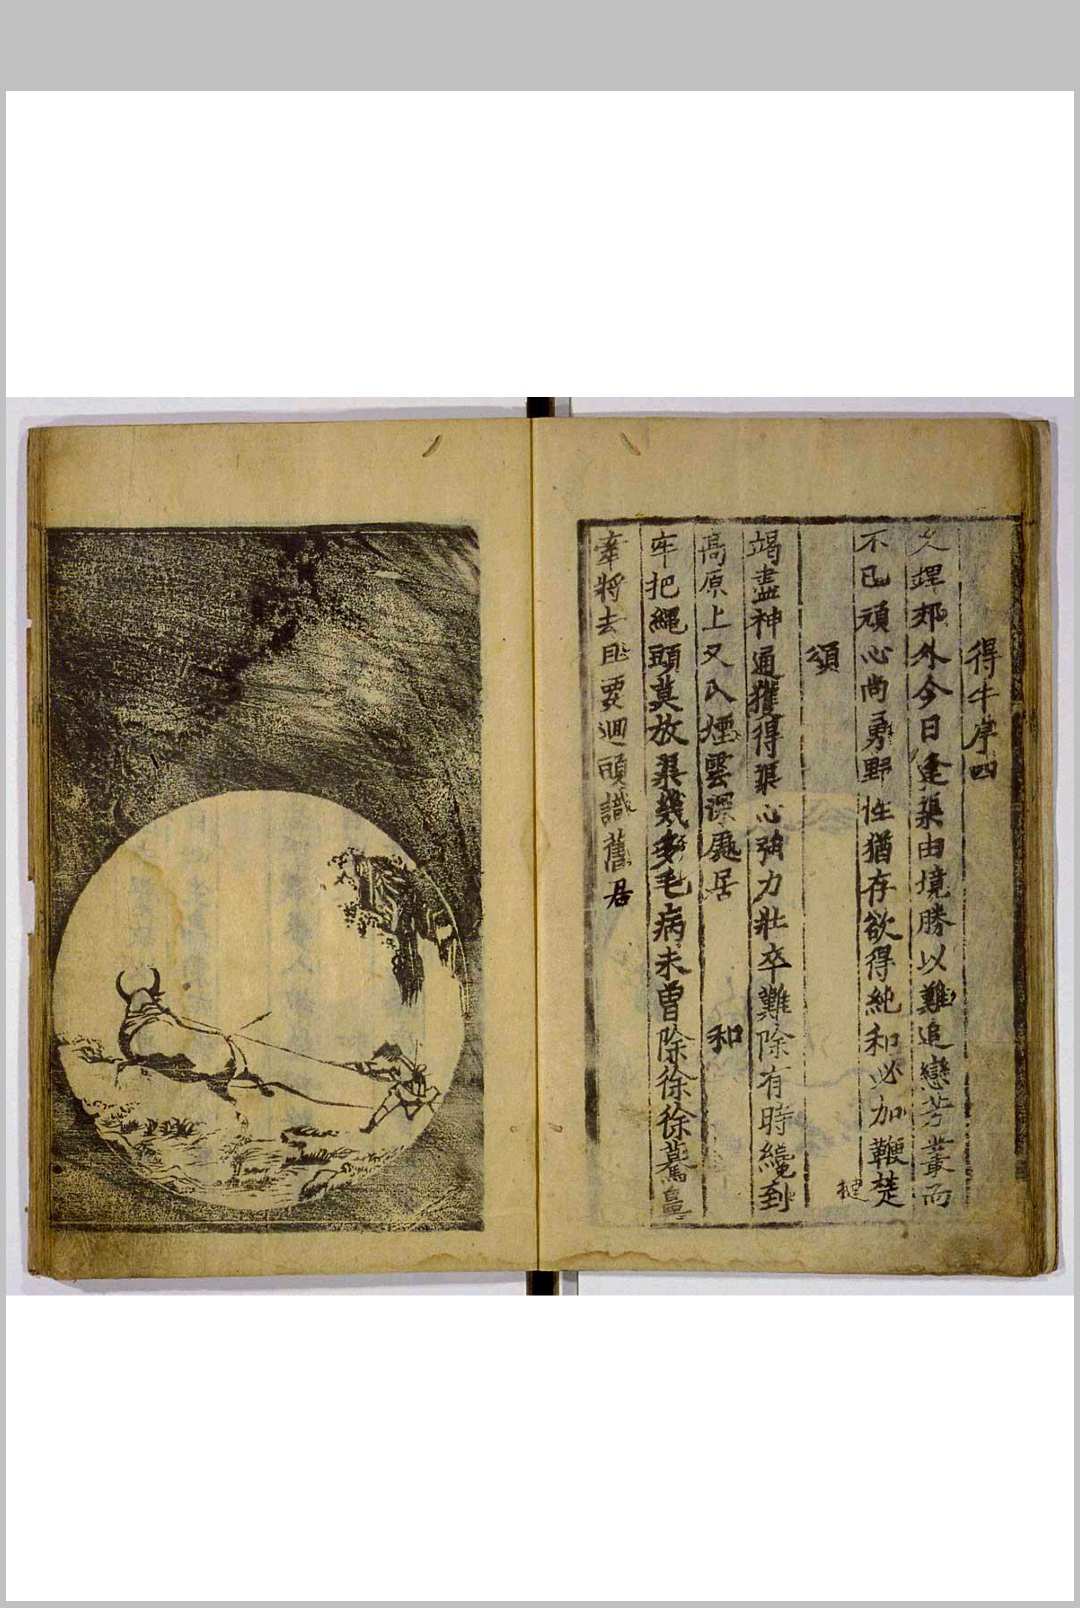 得牛序四
久埋郊外今日逢渠由境勝以難追戀芳叢而
不已頑心尚勇野性猶存欲得純和必加鞭楚
撻
頌
竭盡神通獲得渠心強力壯卒難除有時纔到
高原上又入煙雲深處居 和
牢把繩頭莫放渠幾多毛病未曾除徐徐驀鼻
牽將去且要迴頭識舊居